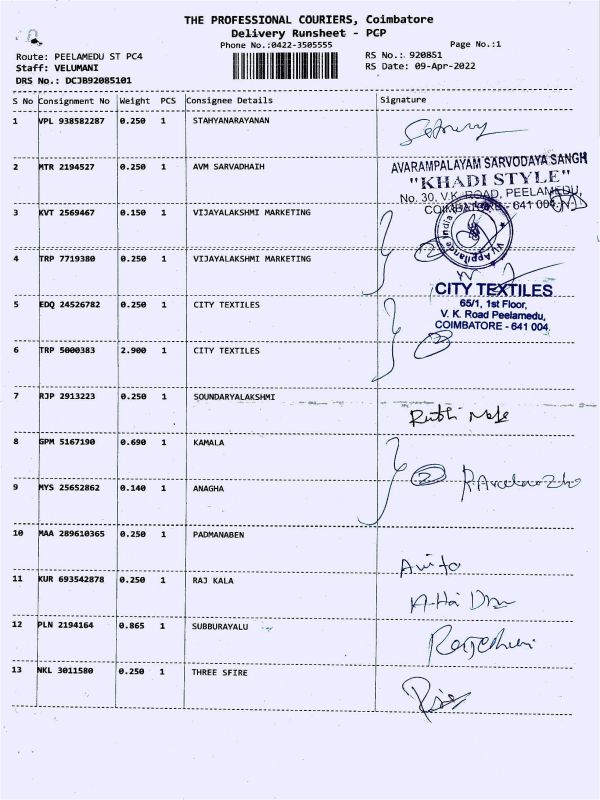 THE PROFESSIONAL COURIERS, Coimbatore
Delivery Runsheet - PCP
Phone No.:0422-3505555
Page No.:1
Route: PEELAMEDU ST PC4
RS No.: 920851
Staff: VELUMANI
RS Date: 09-Apr-2022
DRS No.: DCJB92085101
S No Consignment No Weight PCS Consignee Details Signature
1 VPL 938582287 0.250 1 STAHYANARAYANAN
2 MTR 2194527 0.250 1 AVM SARVADHAIH
AVARAMPALAYAM SARVODAYA SANGH
"KHADI STYLE"
No. 30, V.K. ROAD, PEELAMEDU,
COIMBATORE - 641 004
3 KVT 2569467 0.150 1 VIJAYALAKSHMI MARKETING
4 TRP 7719380 0.250 1 VIJAYALAKSHMI MARKETING
2
5 EDQ 24526782 0.250 1 CITY TEXTILES
CITY TEXTILES
65/1, 1st Floor,
V. K. Road Peelamedu,
COIMBATORE - 641 004.
6 TRP 5000383 2.900 1 CITY TEXTILES
2
7 RJP 2913223 0.250 1 SOUNDARYALAKSHMI
8 GPM 5167190 0.690 1 KAMALA
2
9 MYS 25652862 0.140 1 ANAGHA
10 MAA 289610365 0.250 1 PADMANABEN
11 KUR 693542878 0.250 1 RAJ KALA
12 PLN 2194164 0.865 1 SUBBURAYALU
13 NKL 3011580 0.250 1 THREE SFIRE